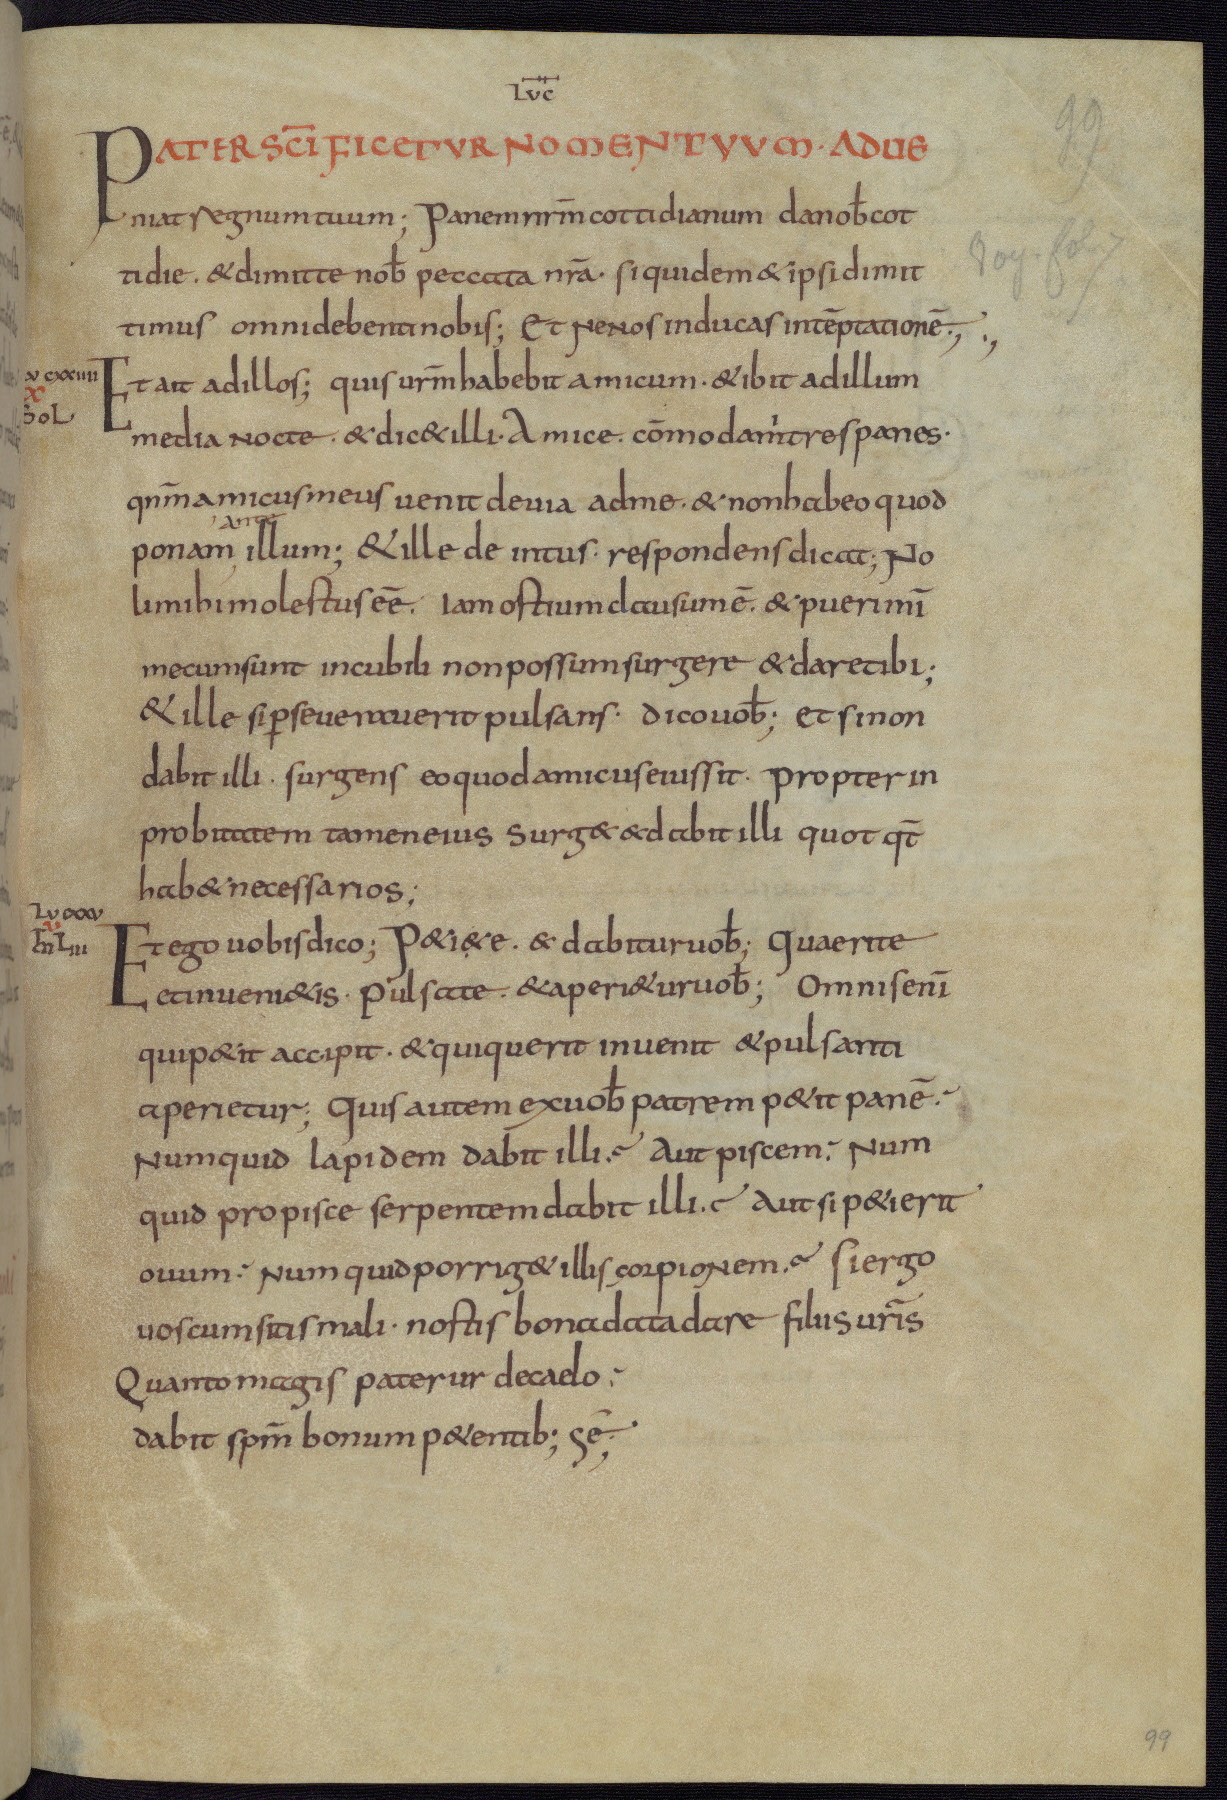 Luc̄
PATER SC̄IFICETUR NOMEN TUUM · ADUE
niat regnum tuum; Panem nr̄m cottidianum da nob̄ cot
tidie . & dimitte nob̄ peccata nr̄a · siquidem & ipsi dimit
timus omni debenti nobis; Et ne nos inducas in tēptationē .,
Et ait ad illos; quis ur̄m habebit amicum · & ibit ad illum
media nocte · & dic& illi · Amice . cōmoda m̄ tres panes ·
qn̄m amicus meus uenit de uia ad me · & non habeo quod
ante
ponam illum; & ille de intus · respondens dicat; No
li mihi molestus eē . Iam ostium clausum ē . & pueri mī
mecum sunt in cubili non possum surgere & dare tibi;
& ille si p̱seuerauerit pulsans · dico uob̄; et si non
dabit illi . surgens eo quod amicus eius sit · propter in
probitatem tamen eius surg& & dabit illi quot qt̄
hab& necessarios;
Et ego uobis dico; P&i&e . & dabitur uob̄; Quaerite
et inueni&is · Pulsate . & aperi&ur uob̄; Omnis enī
qui p&it accipit · & qui querit inuenit & pulsanti
aperietur; Quis autem ex uob̄ patrem p&it panē .
Numquid lapidem dabit illi . Aut piscem . Num
quid pro pisce serpentem dabit illi . Aut si p&ierit
ouum . Numquid porrig& illi scorpionem . Si ergo
uos cum sitis mali · nostis bona data dare filiis ur̄is
Quanto magis pater ur de caelo .
dabit sp̄m bonum p&entib; sē .,
99
99